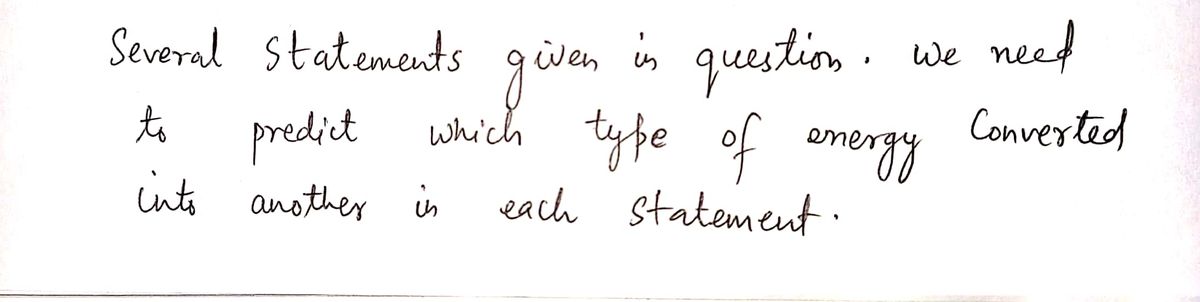 Several statements given in question. We need
to predict which type of energy Converted
into another in each statement.